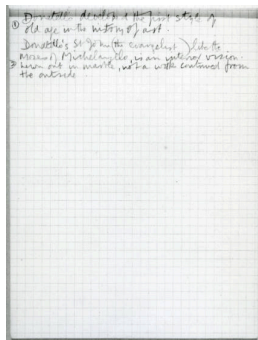 ① Donatello developed the first style of
old age in the history of art.
Donatello's St John (the evangelist) like the
Moses of Michelangelo, is an interior vision
hewn out in marble, not a work contrived from
the outside